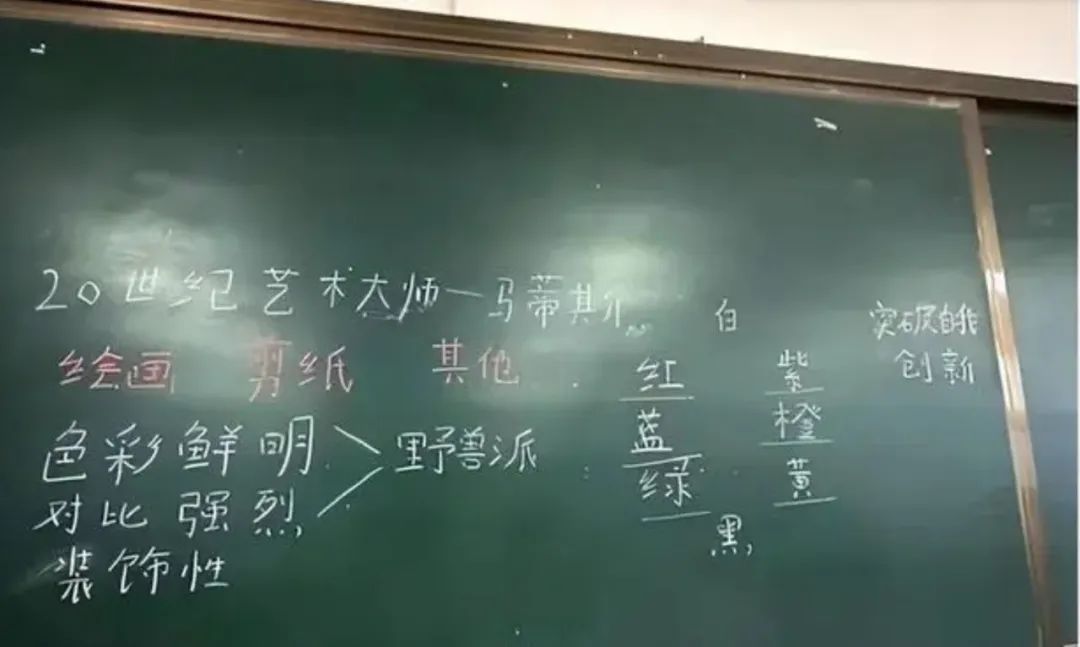 20世纪艺术大师—马蒂斯
绘画 剪纸 其他
色彩鲜明
对比强烈
野兽派
装饰性
白
红 紫
蓝 橙
绿 黄
黑
突破自我
创新